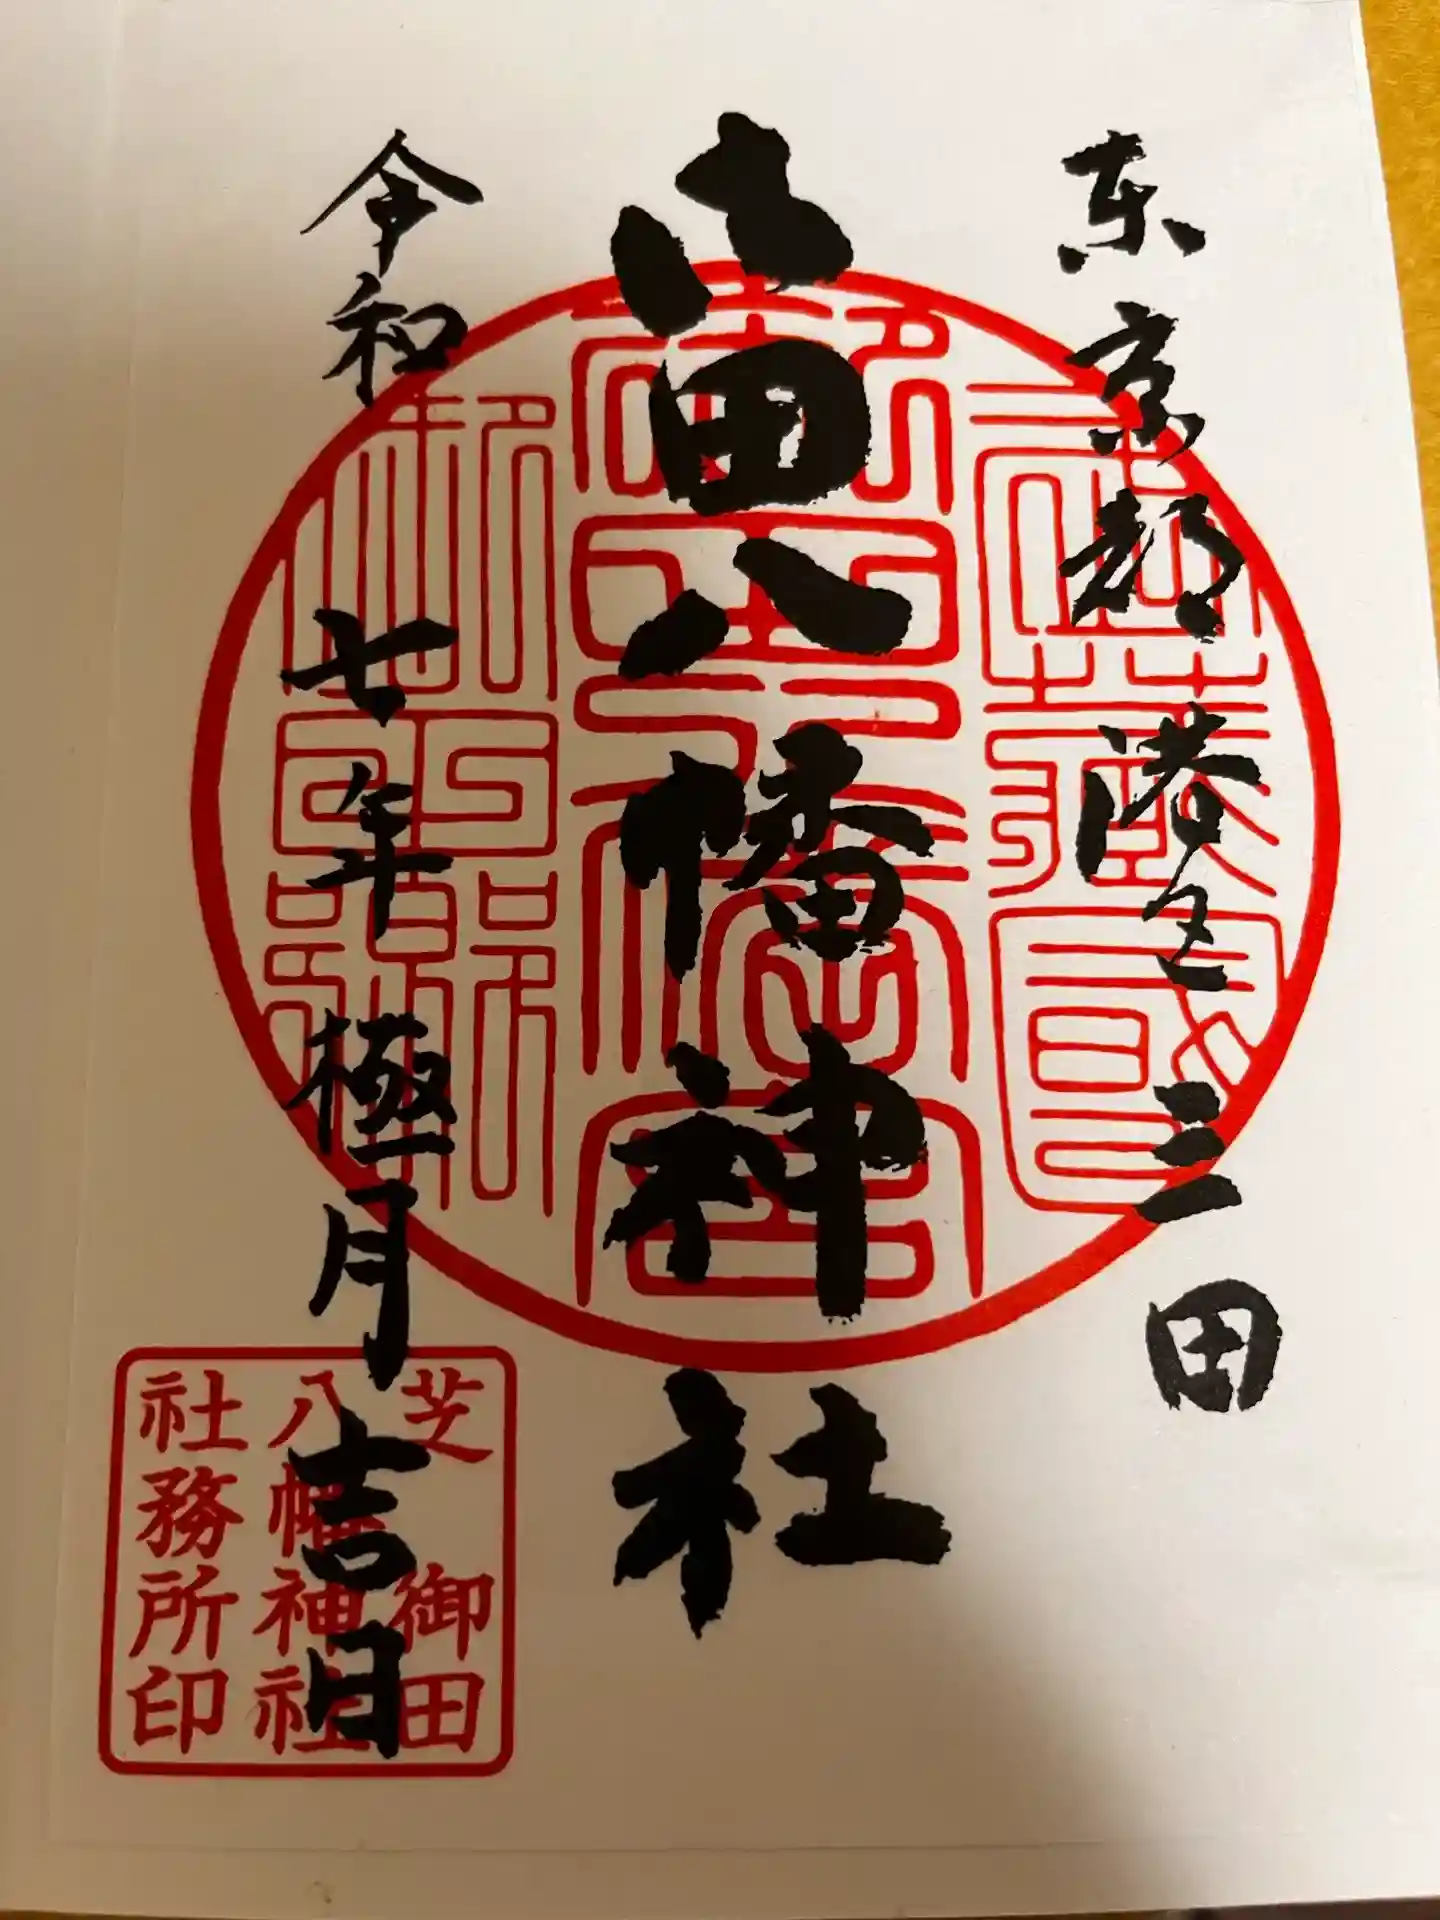 東京都港区三田
御田八幡神社
令和七年極月吉日
武蔵國
御田八幡宮
芝御田
八幡神社
社務所印